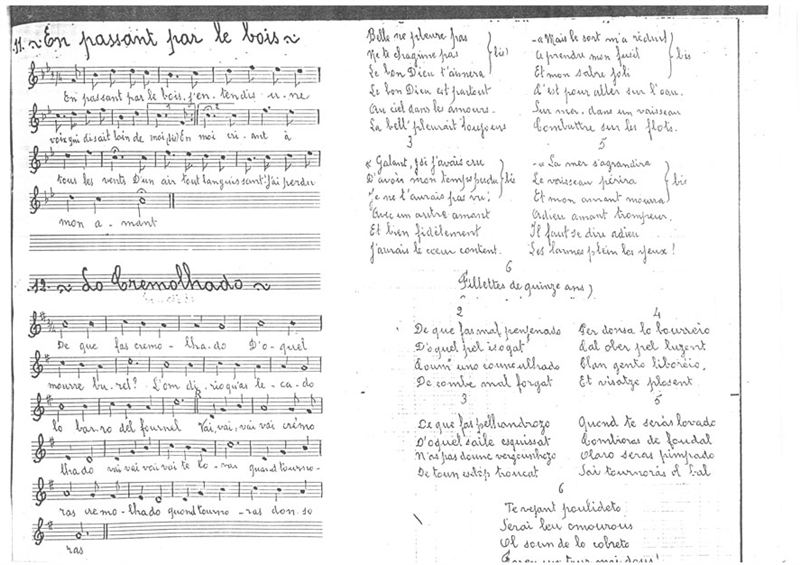 11. En passant par le bois
En passant par le bois, j'en-tendis u-ne
voix qui disait loin de moi (bis) En moi cri-ant à
tous les vents D'un air tout languissant: J'ai perdu
mon a-mant
Belle ne pleure pas
Ne te chagrine pas
bis
Le bon Dieu t'aimera
Le bon Dieu est partout
Au ciel dans les amours.
La bell' pleurait toujours
3
Galant, si j'avais cru
D'avoir mon temps perdu
bis
Je ne t'aurais pas vu.
Avec un autre amant
Et bien fidèlement
J'aurais le cœur content.
4
Mais le sort m'a réduit
A prendre mon fusil
bis
Et mon sabre joli
C'est pour aller sur l'eau.
Sur mer, dans un vaisseau
Combattre sur les flots.
5
La mer s'agrandira
Le vaisseau périra
bis
Et mon amant mourra
Adieu amant trompeur,
Il faut se dire adieu
Les larmes plein les yeux!
6
Fillettes de quinze ans,
12. Lo Cremolhado
De que fas cremo-lha-do D'o-quel
mourre bu-rel? L'om di-rio qu'as le-ca-do
lo bar-ro del fournel Vai, vai, vai, vai crémo
lhado vai vai vai vai te lo-ras quand tourno-
ras cremo-lhado quond tourno-ras don-so
ras
2
De que fas mal penjenado
D'oquel pel isogat
Coum' uno counoulhado
De combe mal forgat
3
De que fas pelhandrozo
D'oquel saile esquissat
N'as pas dounc vergounhozo
De toun troucat
4
Per donsa lo bourreio
Cal ober pel luzent
Plan gento libreio,
Et visatze plosent
5
Quond te seràs lovado
de foudal
Claro seras pimpado
Sai tournoràs al bal
6
Te vejant poulideto
Serai leu omourous
Ol soun de lo cobreto